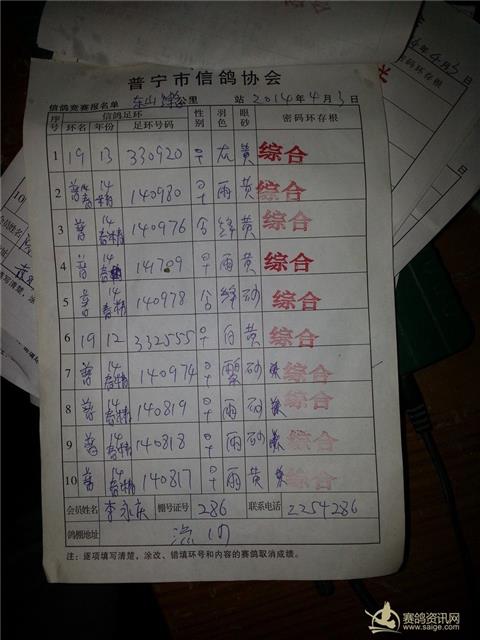 普宁市信鸽协会
信鸽竞赛报名单 公里 站 2014年4月3日
序号 信鸽足环 性别 羽色 眼砂 密码环存根
环名 年份 足环号码
1 19 13 330920 ♀ 灰 黄 综合
2 普 14 春精 140980 ♀ 雨 黄 综合
3 普 14 春精 140976 合 绛 黄 综合
4 普 14 141709 ♀ 雨 黄 综合
5 普 14 春精 140978 合 绛 砂 综合
6 19 12 332555 ♀ 白 黄 综合
7 普 14 春精 140974 ♀ 砂 综合
8 普 14 春精 140819 ♀ 雨 砂 综合
9 普 14 春精 140818 ♀ 雨 砂 综合
10 普 14 春精 140817 ♀ 雨 黄 综合
会员姓名 李永庆 棚号证号 286 联系电话 2254286
鸽棚地址
注：逐项填写清楚，涂改、错填环号和内容的赛鸽取消成绩。
年4月3日
密码环存根
赛鸽资讯网
www.saige.com